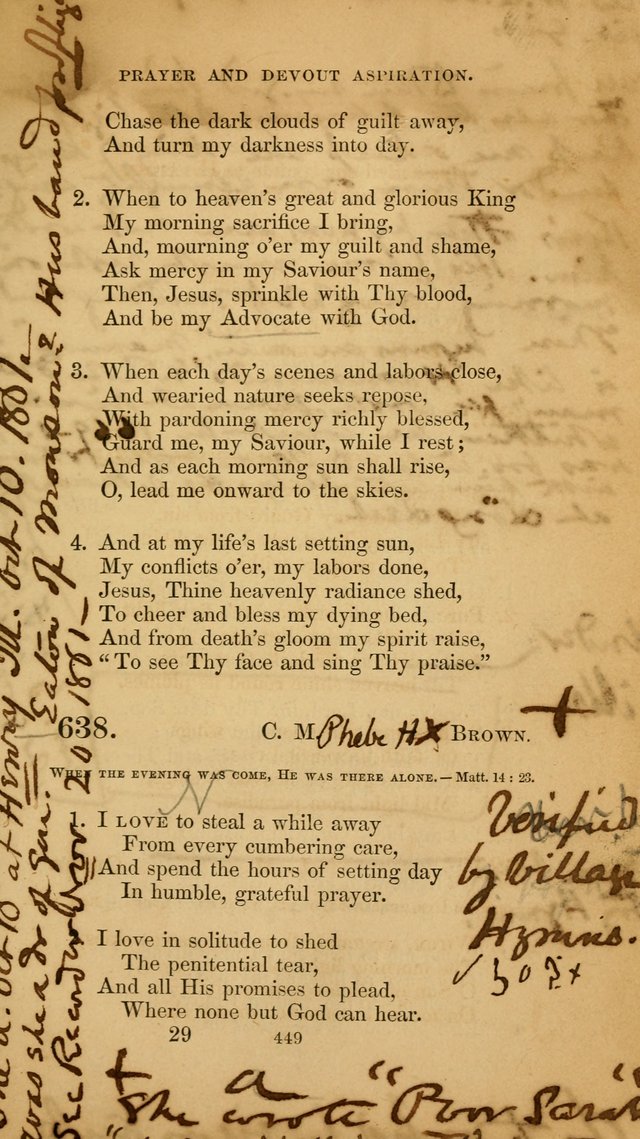 PRAYER AND DEVOUT ASPIRATION.
Chase the dark clouds of guilt away,
And turn my darkness into day.
2. When to heaven's great and glorious King
My morning sacrifice I bring,
And, mourning o'er my guilt and shame,
Ask mercy in my Saviour's name,
Then, Jesus, sprinkle with Thy blood,
And be my Advocate with God.
3. When each day's scenes and labors close,
And wearied nature seeks repose,
With pardoning mercy richly blessed,
Guard me, my Saviour, while I rest;
And as each morning sun shall rise,
O, lead me onward to the skies.
4. And at my life's last setting sun,
My conflicts o'er, my labors done,
Jesus, Thine heavenly radiance shed,
To cheer and bless my dying bed,
And from death's gloom my spirit raise,
"To see Thy face and sing Thy praise."
638. C. M. Phebe H BROWN.
WHEN THE EVENING WAS COME, HE WAS THERE ALONE. — Matt. 14 : 23.
1. I LOVE to steal a while away
From every cumbering care,
And spend the hours of setting day
In humble, grateful prayer.
I love in solitude to shed
The penitential tear,
And all His promises to plead,
Where none but God can hear.
29 449
Verified
by Village
Hymns.
She wrote a "Poor Sarah
at Henry Ill. Oct 10. 1861
was she a dr of Gen. Eaton of Monson? Husband
See Recorder Nov 20 1861